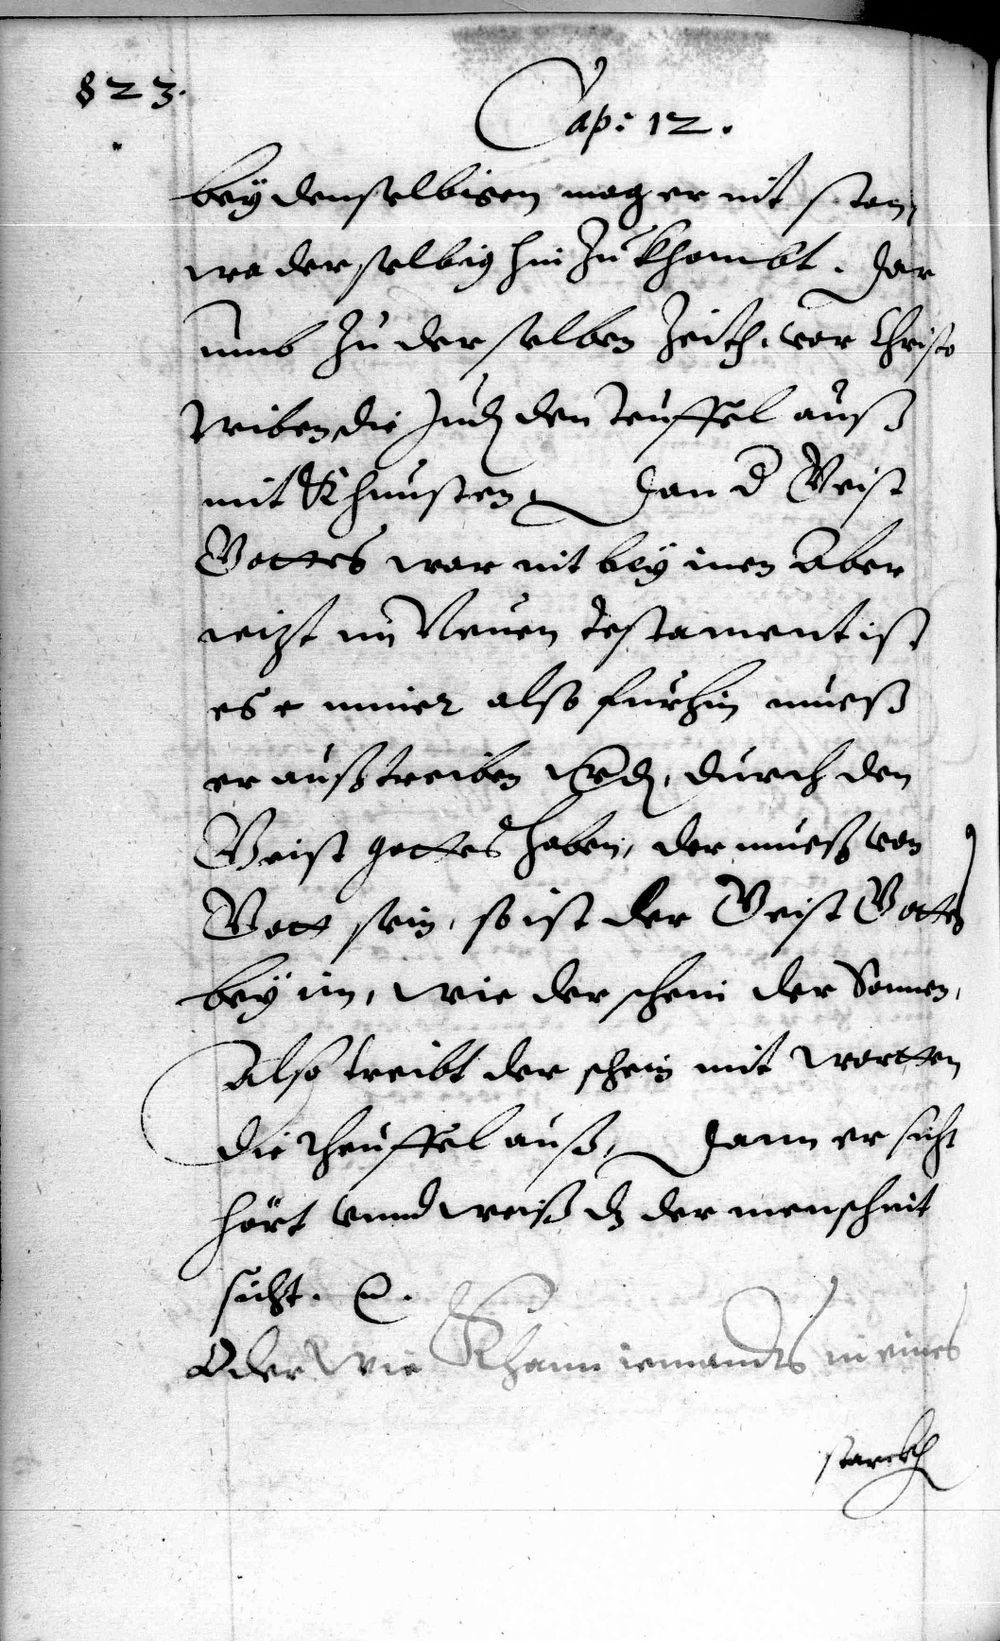 823.
Cap: 12.
bey denselbigen mag er nit stan,
wo derselbig hin Zukhombt. Dar
umb Zu der selben Zeith, vor Christo
triben die Jud den teuffel auß
mit Khunsten, Dan d Geist
Gottes war nit bey inen Aber
ietzt im Neuen testament ist
es nimer also furhin mueß
er außtreiben durch den
Geist gottes haben, der mueß von
Gott sein, so ist der Geist Gottes
bey im, wie der schein der Sonnen,
Also treibt der schein mit wortten
die theuffel auß, Dann er sicht
hört vnnd weiß dz der mensch nit
sicht. etc.
Oder wie Khann iemandts in eines
starckh